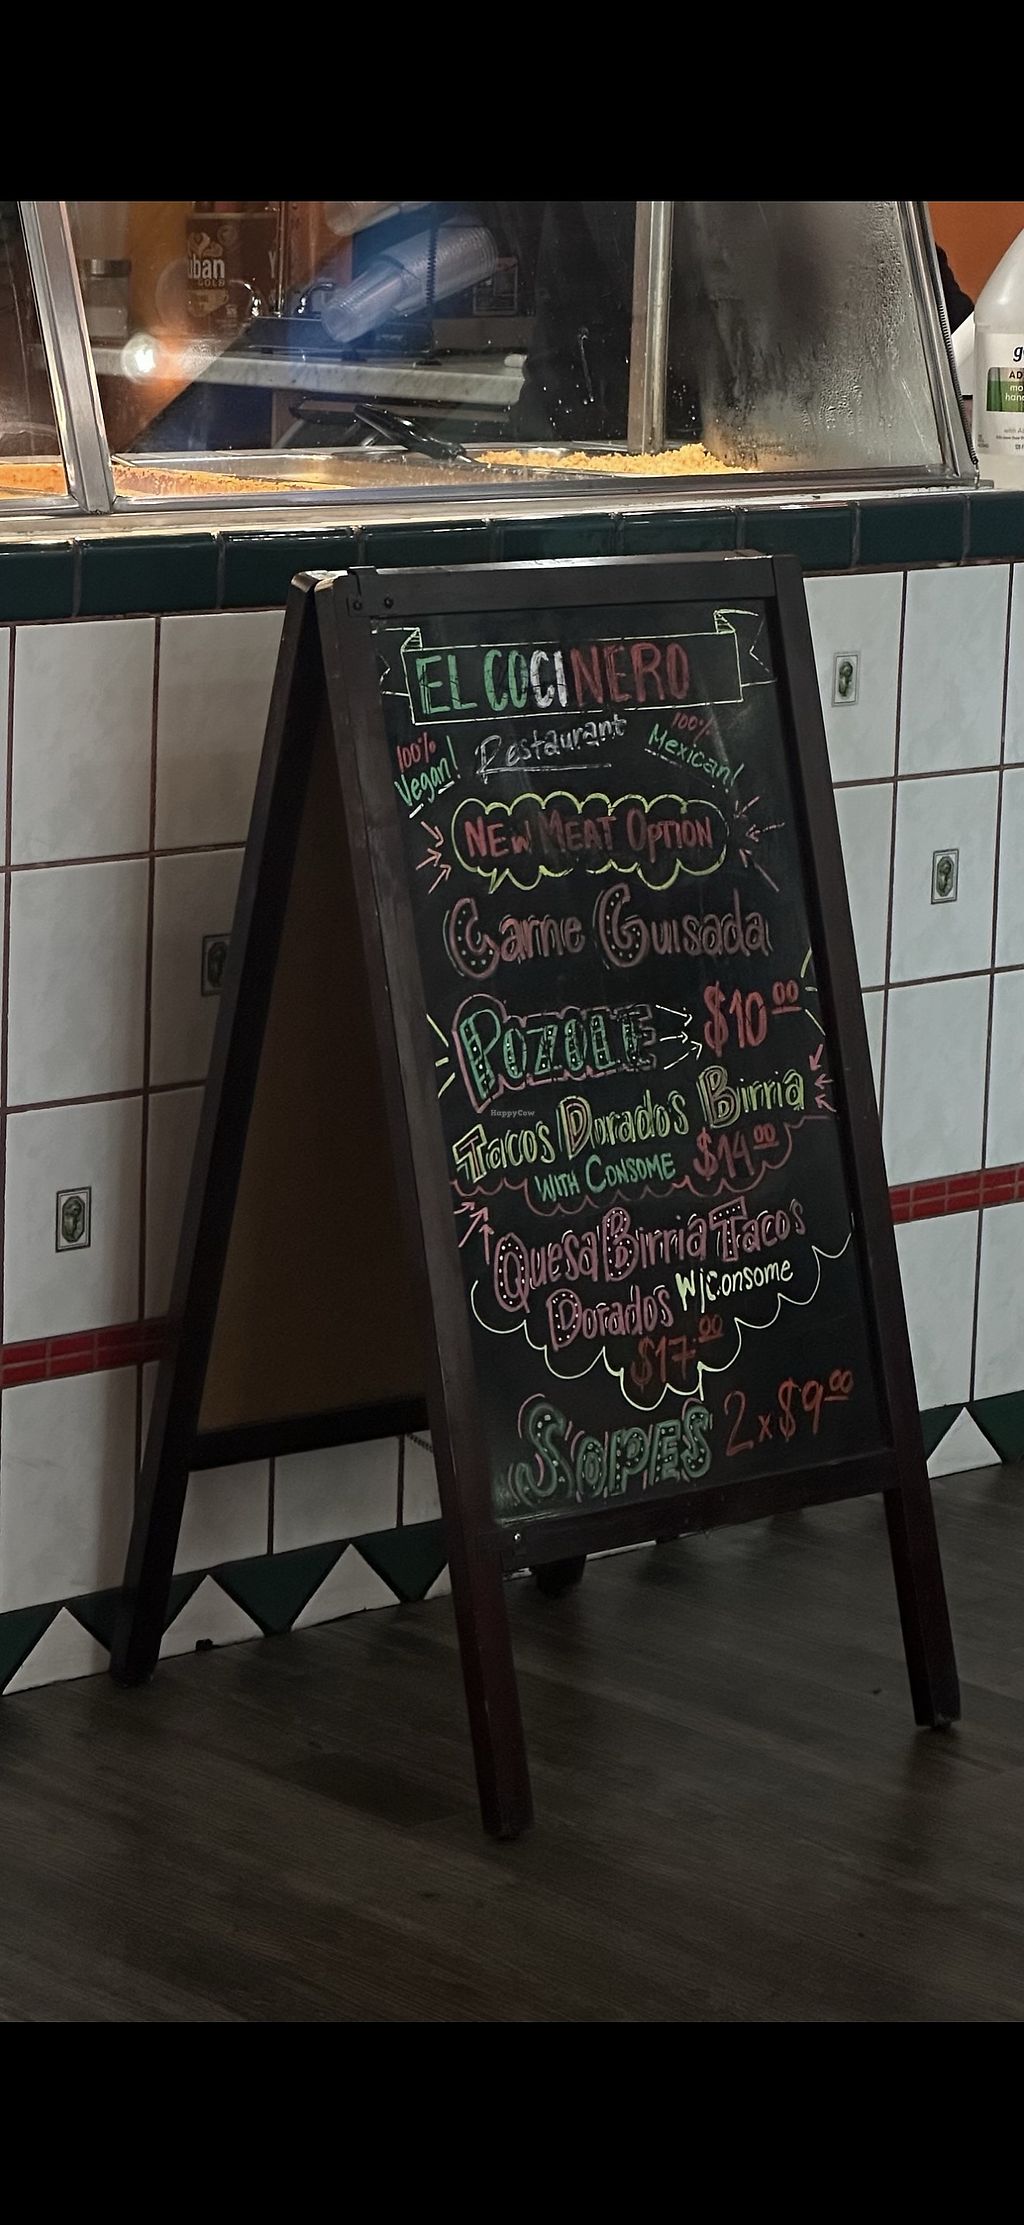 EL COCINERO
100% Vegan!
Restaurant
100% Mexican!
NEW MEAT OPTION
Carne Guisada
POZOLE $10.00
Tacos Dorados Birria
WITH CONSOME $14.00
QuesaBirria Tacos
Dorados W/Consome
$17.00
SOPES 2x$9.00
HappyCow